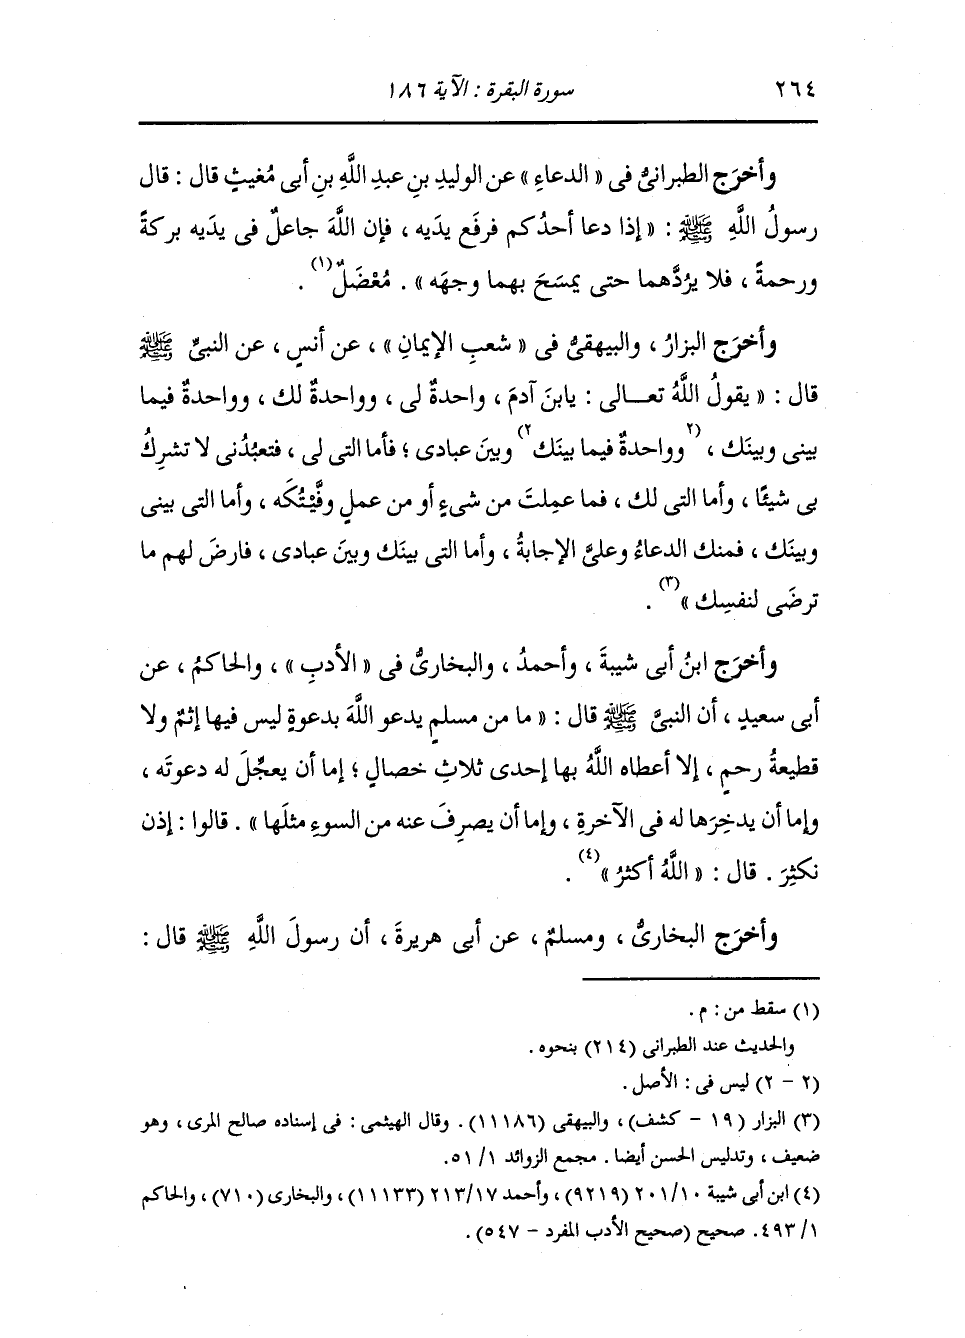 ٢٦٤ سورة البقرة : الآية ١٨٦
وأخرَج الطبرانىُّ فى « الدعاءِ » عن الوليدِ بنِ عبدِ اللَّهِ بنِ أبى مُغيثٍ قال : قال
رسولُ اللَّهِ ﷺ : « إذا دعا أحدُكم فرفَع يدَيه ، فإن اللَّهَ جاعلٌ فى يدَيه بركةً
ورحمةً ، فلا يرُدَّهما حتى يمسَحَ بهما وجهَه » . مُعْضَلٌ(١) .
وأخرَج البزارُ ، والبيهقىُّ فى « شعبِ الإيمانِ » ، عن أنسٍ ، عن النبىِّ ﷺ
قال : « يقولُ اللَّهُ تعـالى : يابنَ آدمَ ، واحدةٌ لى ، وواحدةٌ لك ، وواحدةٌ فيما
بينى وبينَك ، (٢)وواحدةٌ فيما بينَك٢) وبينَ عبادى ؛ فأما التى لى ، فتعبُدُنى لا تشرِكُ
بى شيئًا ، وأما التى لك ، فما عمِلتَ من شىءٍ أو من عملٍ وفَّيْتُكَه ، وأما التى بينى
وبينَك ، فمنك الدعاءُ وعلىَّ الإجابةُ ، وأما التى بينَك وبينَ عبادى ، فارضَ لهم ما
ترضَى لنفسِك »(٣) .
وأخرَج ابنُ أبى شيبةَ ، وأحمدُ ، والبخارىُّ فى « الأدبِ » ، والحاكمُ ، عن
أبى سعيدٍ ، أن النبىَّ ﷺ قال : « ما من مسلمٍ يدعو اللَّهَ بدعوةٍ ليس فيها إثمٌ ولا
قطيعةُ رحمٍ ، إلا أعطاه اللَّهُ بها إحدى ثلاثِ خصالٍ ؛ إما أن يعجِّلَ له دعوتَه ،
وإما أن يدخِرَها له فى الآخرةِ ، وإما أن يصرِفَ عنه من السوءِ مثلَها » . قالوا : إذن
نكثِرَ . قال : « اللَّهُ أكثرُ »(٤) .
وأخرَج البخارىُّ ، ومسلمٌ ، عن أبى هريرةَ ، أن رسولَ اللَّهِ ﷺ قال :
(١) سقط من : م .
والحديث عند الطبرانى (٢١٤) بنحوه .
(٢ - ٢) ليس فى : الأصل .
(٣) البزار (١٩ - كشف) ، والبيهقى (١١١٨٦) . وقال الهيثمى : فى إسناده صالح المرى ، وهو
ضعيف ، وتدليس الحسن أيضا . مجمع الزوائد ١/ ٥١.
(٤) ابن أبى شيبة ٢٠١/١٠ (٩٢١٩) ، وأحمد ٢١٣/١٧ (١١١٣٣) ، والبخارى (٧١٠) ، والحاكم
١/ ٤٩٣. صحيح (صحيح الأدب المفرد - ٥٤٧) .